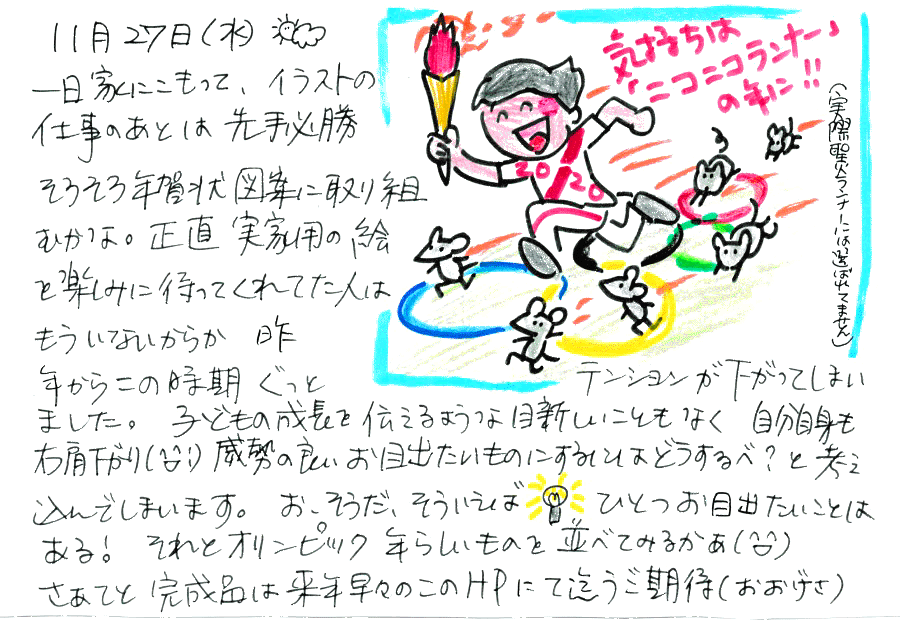 11月27日(水)
一日家にこもって、イラストの
仕事のあとは先手必勝
そろそろ年賀状図案に取り組
むかな。正直 実家用の絵
を楽しみに待ってくれてた人は
もういないからか 昨
年からこの時期 ぐっと テンションが下がってしまい
ました。 子どもの成長を伝えるような目新しいこともなく 自分自身も
右肩下がり( )威勢の良いお目出たいものにするにはどうするべ?と考え
込んでしまいます。 お、そうだ、そういえば ひとつお目出たいことは
ある! それとオリンピック 年らしいものを並べてみるかあ( )
さあてと 完成品は来年早々のこのHPにて乞うご期待(おおげさ)
気持ちは
「ニコニコランナー」
の年に!!
(実際聖火ランナーには選ばれてません)
2020